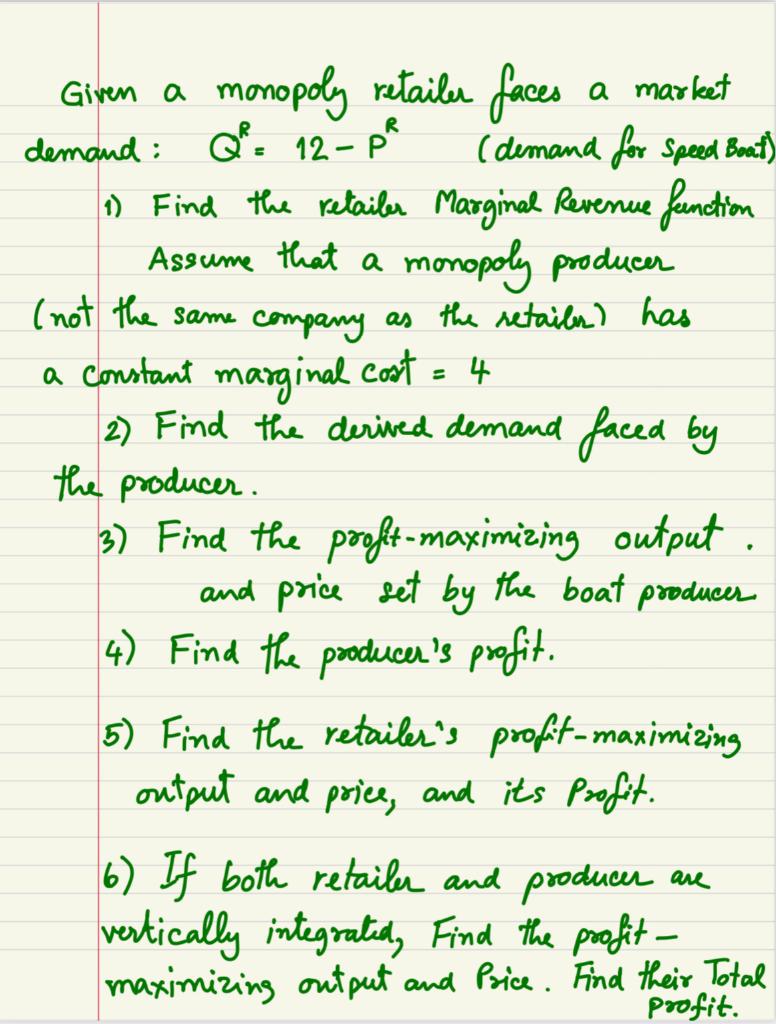 Given a monopoly retailer faces a market
demand : Q^R = 12 - P^R (demand for Speed Boat)
1) Find the retailer Marginal Revenue function
Assume that a monopoly producer
(not the same company as the retailer) has
a constant marginal cost = 4
2) Find the derived demand faced by
the producer.
3) Find the profit-maximizing output .
and price set by the boat producer
4) Find the producer's profit.
5) Find the retailer's profit-maximizing
output and price, and its Profit.
6) If both retailer and producer are
vertically integrated, Find the profit-
maximizing output and Price. Find their Total
profit.